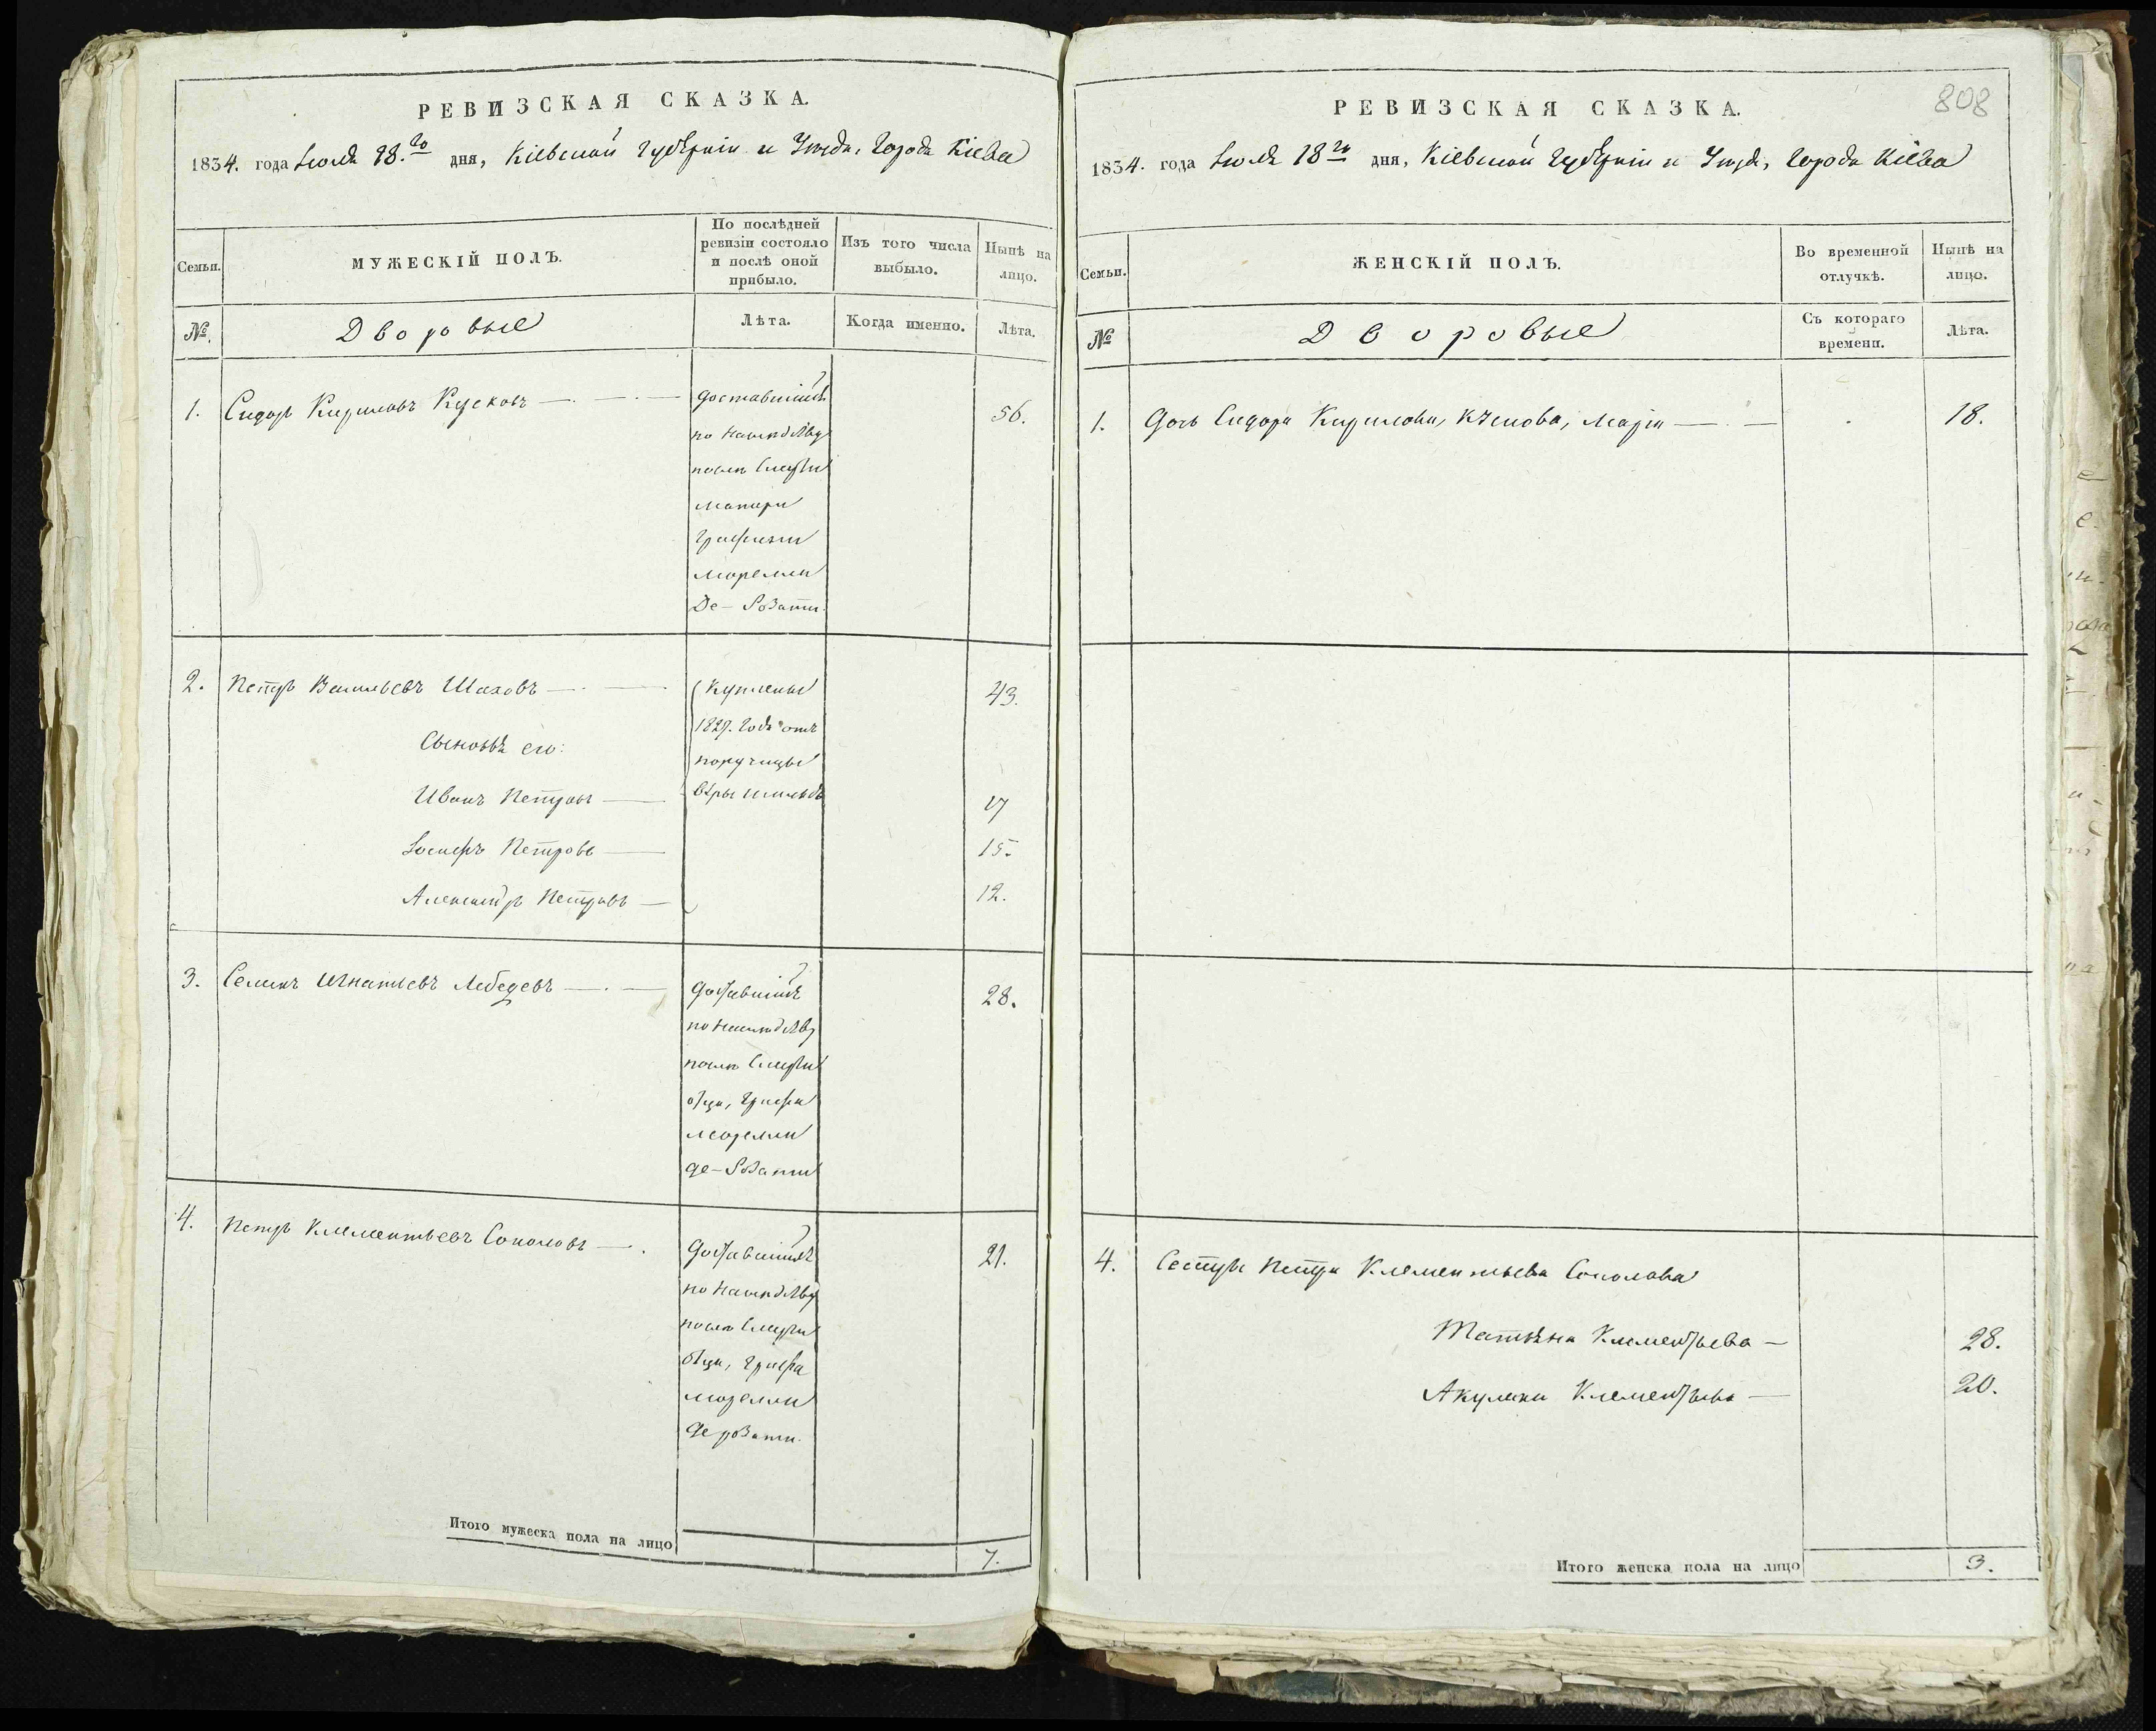 РЕВИЗСКАЯ СКАЗКА.
1834. года Іюля 18.го дня, Кіевской Губерніи и Уезда, Города Кіева
Семьи.
МУЖЕСКІЙ ПОЛЪ.
По послѣдней
ревизіи состояло
и послѣ оной
прибыло.
Изъ того числа
выбыло.
Нынѣ на
лицо.
№.
Дворовые
Лѣта.
Когда именно.
Лѣта.
1. Сидоръ Кириловъ
доставшійся
по наследству
после смерти
матери
Графини
Морелли
Де-Розати.
56.
2. Петръ Васильевъ Шаховъ
Куплены
1827. года отъ
поручицы
Вѣры
43.
Сыновья его:
Иванъ Петровъ 17
Іосифъ Петровъ 15.
Александръ Петровъ 12.
3. Семенъ Игнатьевъ Лебедевъ
доставшійся
по наследству
после смерти
отца, Графа
Морелли
де-Розати
28.
4. Петръ Клементьевъ Соколовъ
Доставшійся
по наследству
после смерти
отца, Графа
Морелли
Де розати.
21.
Итого мужеска пола на лицо 7.
808
РЕВИЗСКАЯ СКАЗКА.
1834. года Іюля 18го дня, Кіевской Губерніи и Уезда, Города Кіева
Семьи.
ЖЕНСКІЙ ПОЛЪ.
Во временной
отлучкѣ.
Нынѣ на
лицо.
№
Дворовые
Съ котораго
времени.
Лѣта.
1. Дочь Сидора Кирилова, Марія 18.
4. Сестры Петра Клементьева Соколова
Татьяна Клементьева 28.
Акулина Клементьева 20.
Итого женска пола на лицо 3.